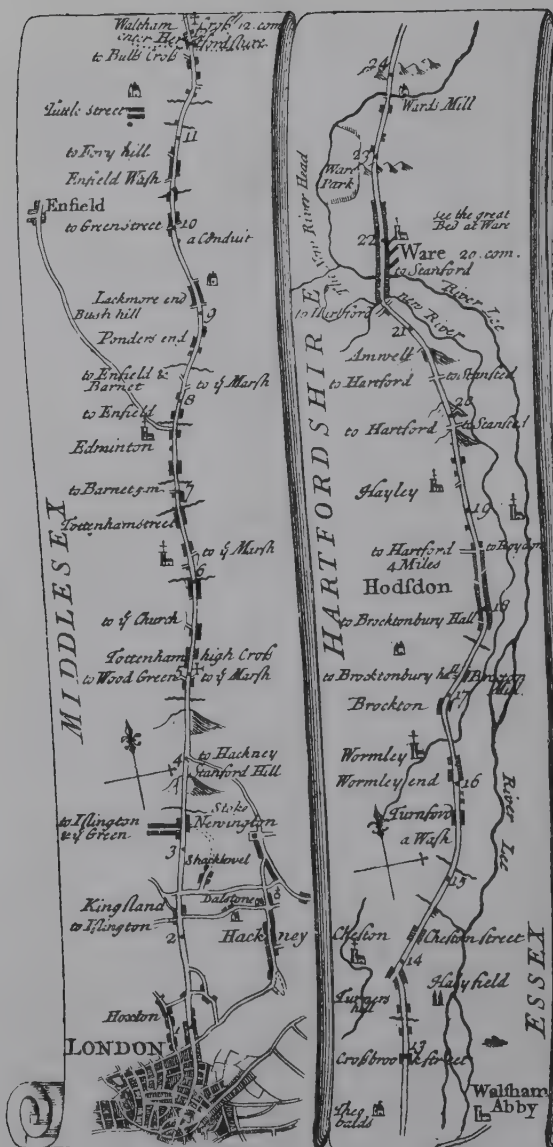 Waltham Croſs 12. com
enter Hertfordſhire
to Bulls Croſs
Tuttle Street
11
to Fory hill.
Enfield Waſh
Enfield
to Greenstreet
10
a Conduit
Lackmore end
Bush hill
9
Ponders end
to Enfield &
Barnet
to ẏ Marſh
8
to Enfield
Edminton
to Barnet 5.m.
7
Tottenhamſtreet
to ẏ Marſh
6
to ẏ Church
Tottenham high Croſs
to Wood Green
to ẏ Marſh
MIDDLESEX
4
to Hackney
Stanford Hill
to Iſlington
& ẏ Green
Stoke
Newington
3
Shacklovel
Kingſland
Dalſtone
to Iſlington
2
Hackney
Hoxton
LONDON
24
Wards Mill
23
Ware
Park
The New River Head
see the great
Bed at Ware
22
Ware 20. com.
to Stanford
to Hartford
New River
River Lee
21
Amwell
to Hartford
to Stanſted
20
to Hartford
to Stanſted
HARTFORDSHIRE
Hayley
19
to Hartford
4 Miles
to Roydon
Hodſdon
18
to Brocktonbury Hall
to Brocktonbury
Mill
17
Brockton
Wormley
Wormley end
16
River Lee
Turnford
a Waſh
15
Cheston
Cheston street
14
Turners
hill
Hallyfield
ESSEX
13
Croſbrook street
Theo
balds
Waltham
Abby